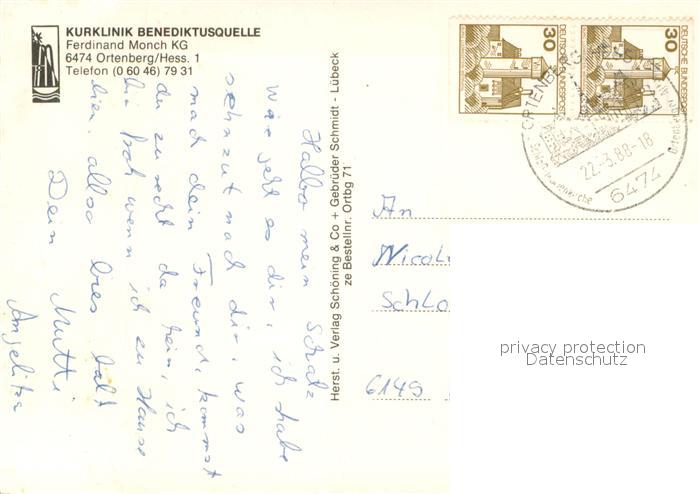 KURKLINIK BENEDIKTUSQUELLE
Ferdinand Monch KG
6474 Ortenberg/Hess. 1
Telefon (0 60 46) 79 31
Hallo mein Schatz
wie geht es dir, ich habe
sehnzut nach dir, was
mach dein Freund, kommst
du zu recht da heim, ich
bin froh wenn ich zu Hause
bin. allso bis balt
Dein Mutti
Angelika
Herst. u. Verlag Schöning & Co + Gebrüder Schmidt - Lübeck
ze Bestellnr. Ortbg 71
30
DEUTSCHE BUNDESPOST
30
DEUTSCHE BUNDESPOST
ORTENBERG
22.-3.88-18
6474
An
Nicol
Schlo
6149
privacy protection
Datenschutz